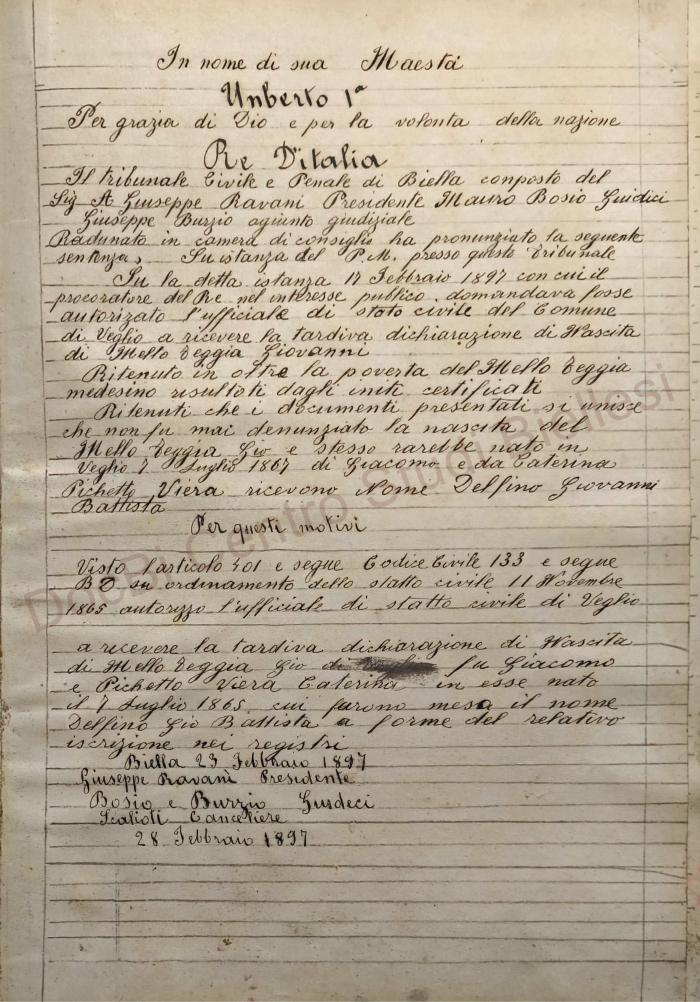 In nome di sua Maestá
Unberto 1º
Per grazia di Dio e per la volonta della nazione
Re D'italia
Il tribunale Civile e Penale di Biella conposto del
Sig A Giuseppe Ravani Presidente Mauro Bosio Giudici
Giuseppe Burzio agiunto giudiziale
Radunato in camera di consiglio ha pronunziato la seguente
sentenza, Su istanza del P. M. presso questo Tribunale
Su la detta istanza 17 Febbraio 1897 con cui il
procoratore del Re nel interesse publico. domandava fosse
autorizato l'ufficiale di stato civile del Comune
di Veglio a ricevere la tardiva dichiarazione di Nascita
di Mello Teggia Giovanni
Ritenuto in oltre la poverta del Mello Teggia
medesino risultati dagli initi certificati
Ritenuti che i documenti presentati si unisce
che non fu mai denunziato la nascita del
Mello Teggia Gio e stesso rarebbe nato in
Veglio 7 Luglio 1867 di Giacomo e da Caterina
Pichetto Viera ricevono Nome Delfino Giovanni
Battista
Per questi motivi
Visto l'articolo 401 e segue Codice Civile 133 e segue
BD su ordinamento dello statto civile 11 Novembre
1865 autorizzo l'ufficiale di statto civile di Veglio
a ricevere la tardiva dichiarazione di Nascita
di Mello Teggia Gio di fu Giacomo
e Pichetto Viera Caterina in esse nato
il 7 Luglio 1865, cui furono mesa il nome
Delfino Gio Battista a forme del relativo
iscrizione nei registri
Biella 23 Febbraio 1897
Giuseppe Ravani Presidente
Bosio e Burzio Giudeci
Scalioti Canceliere
28 Febbraio 1897
DocBi Centro Studi Biellesi